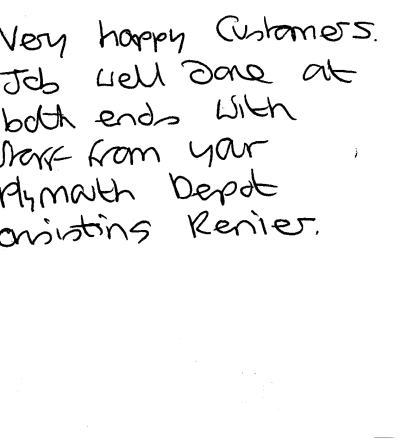 Very happy Customers.
Job well Done at
both ends with
Staff from your
Plymouth Depot
onsisting Renier.